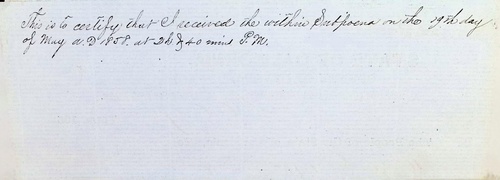 This is to certify that I received the within Subpoena on the 19th day
of May A.D 1858. at 2h & 40 mins P.M.